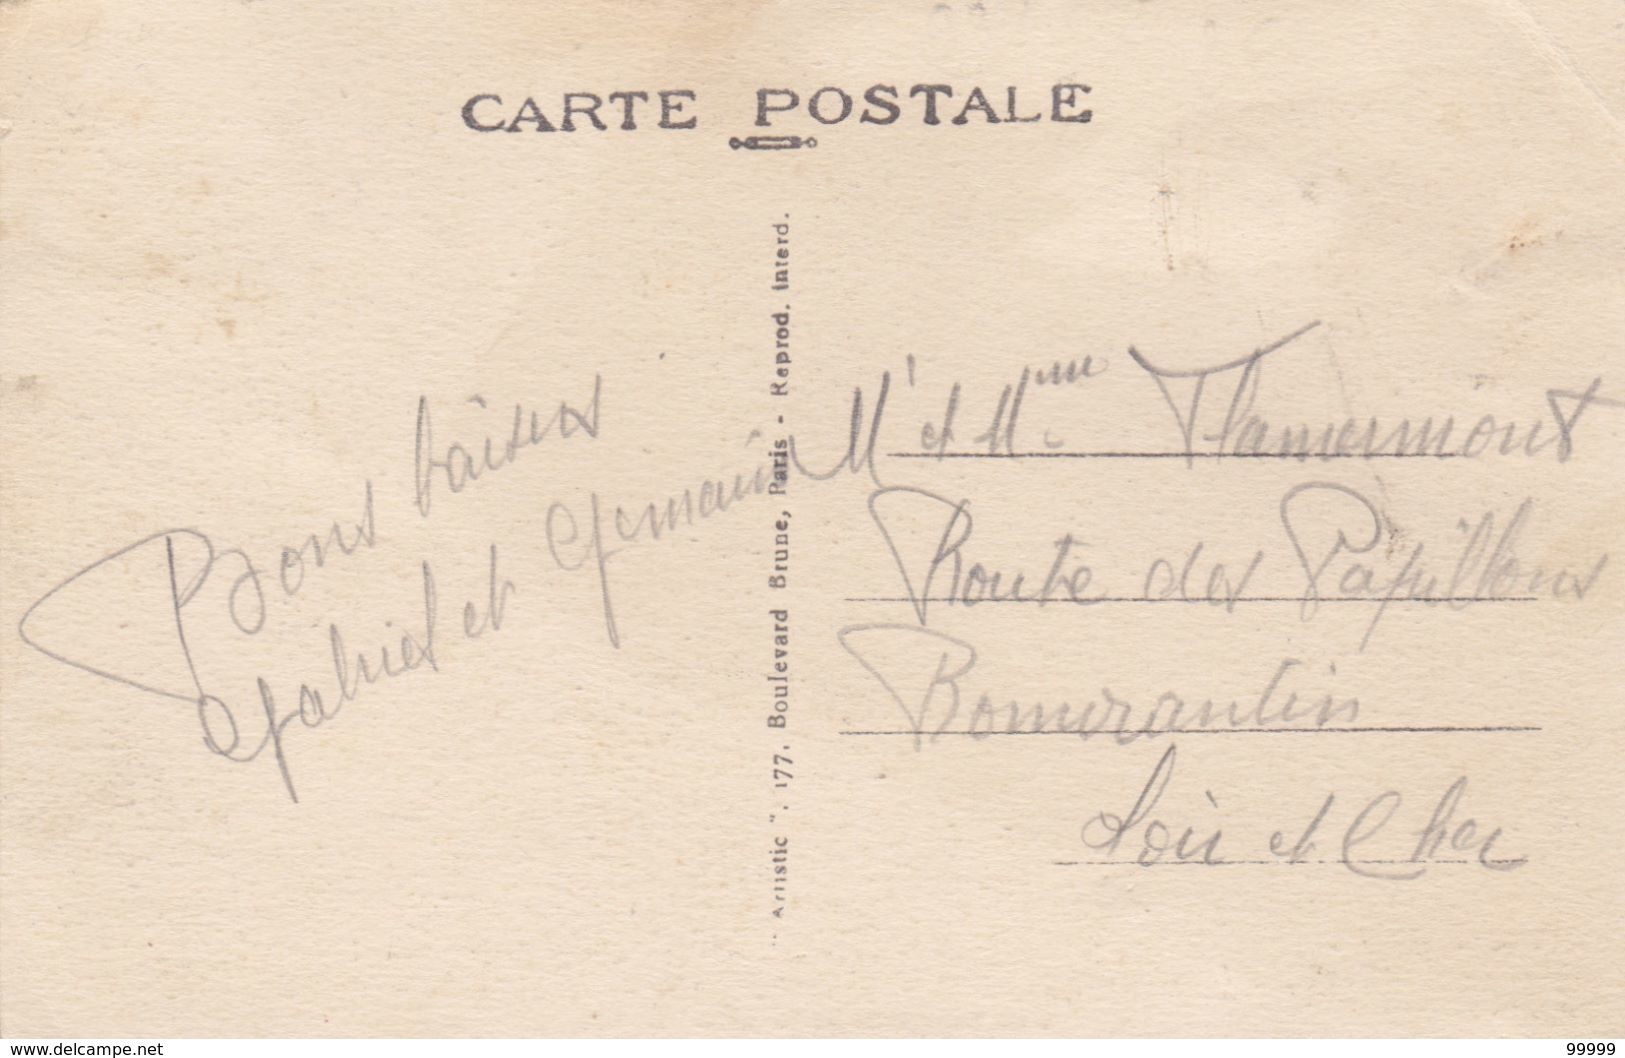 CARTE POSTALE
Bons baisers
Gabriel et Germaine
"Artistic", 177, Boulevard Brune, Paris - Reprod. Interd.
Mr et Mme Flamermont
Route des Papillons
Romorantin
Loir et Cher
www.delcampe.net
99999